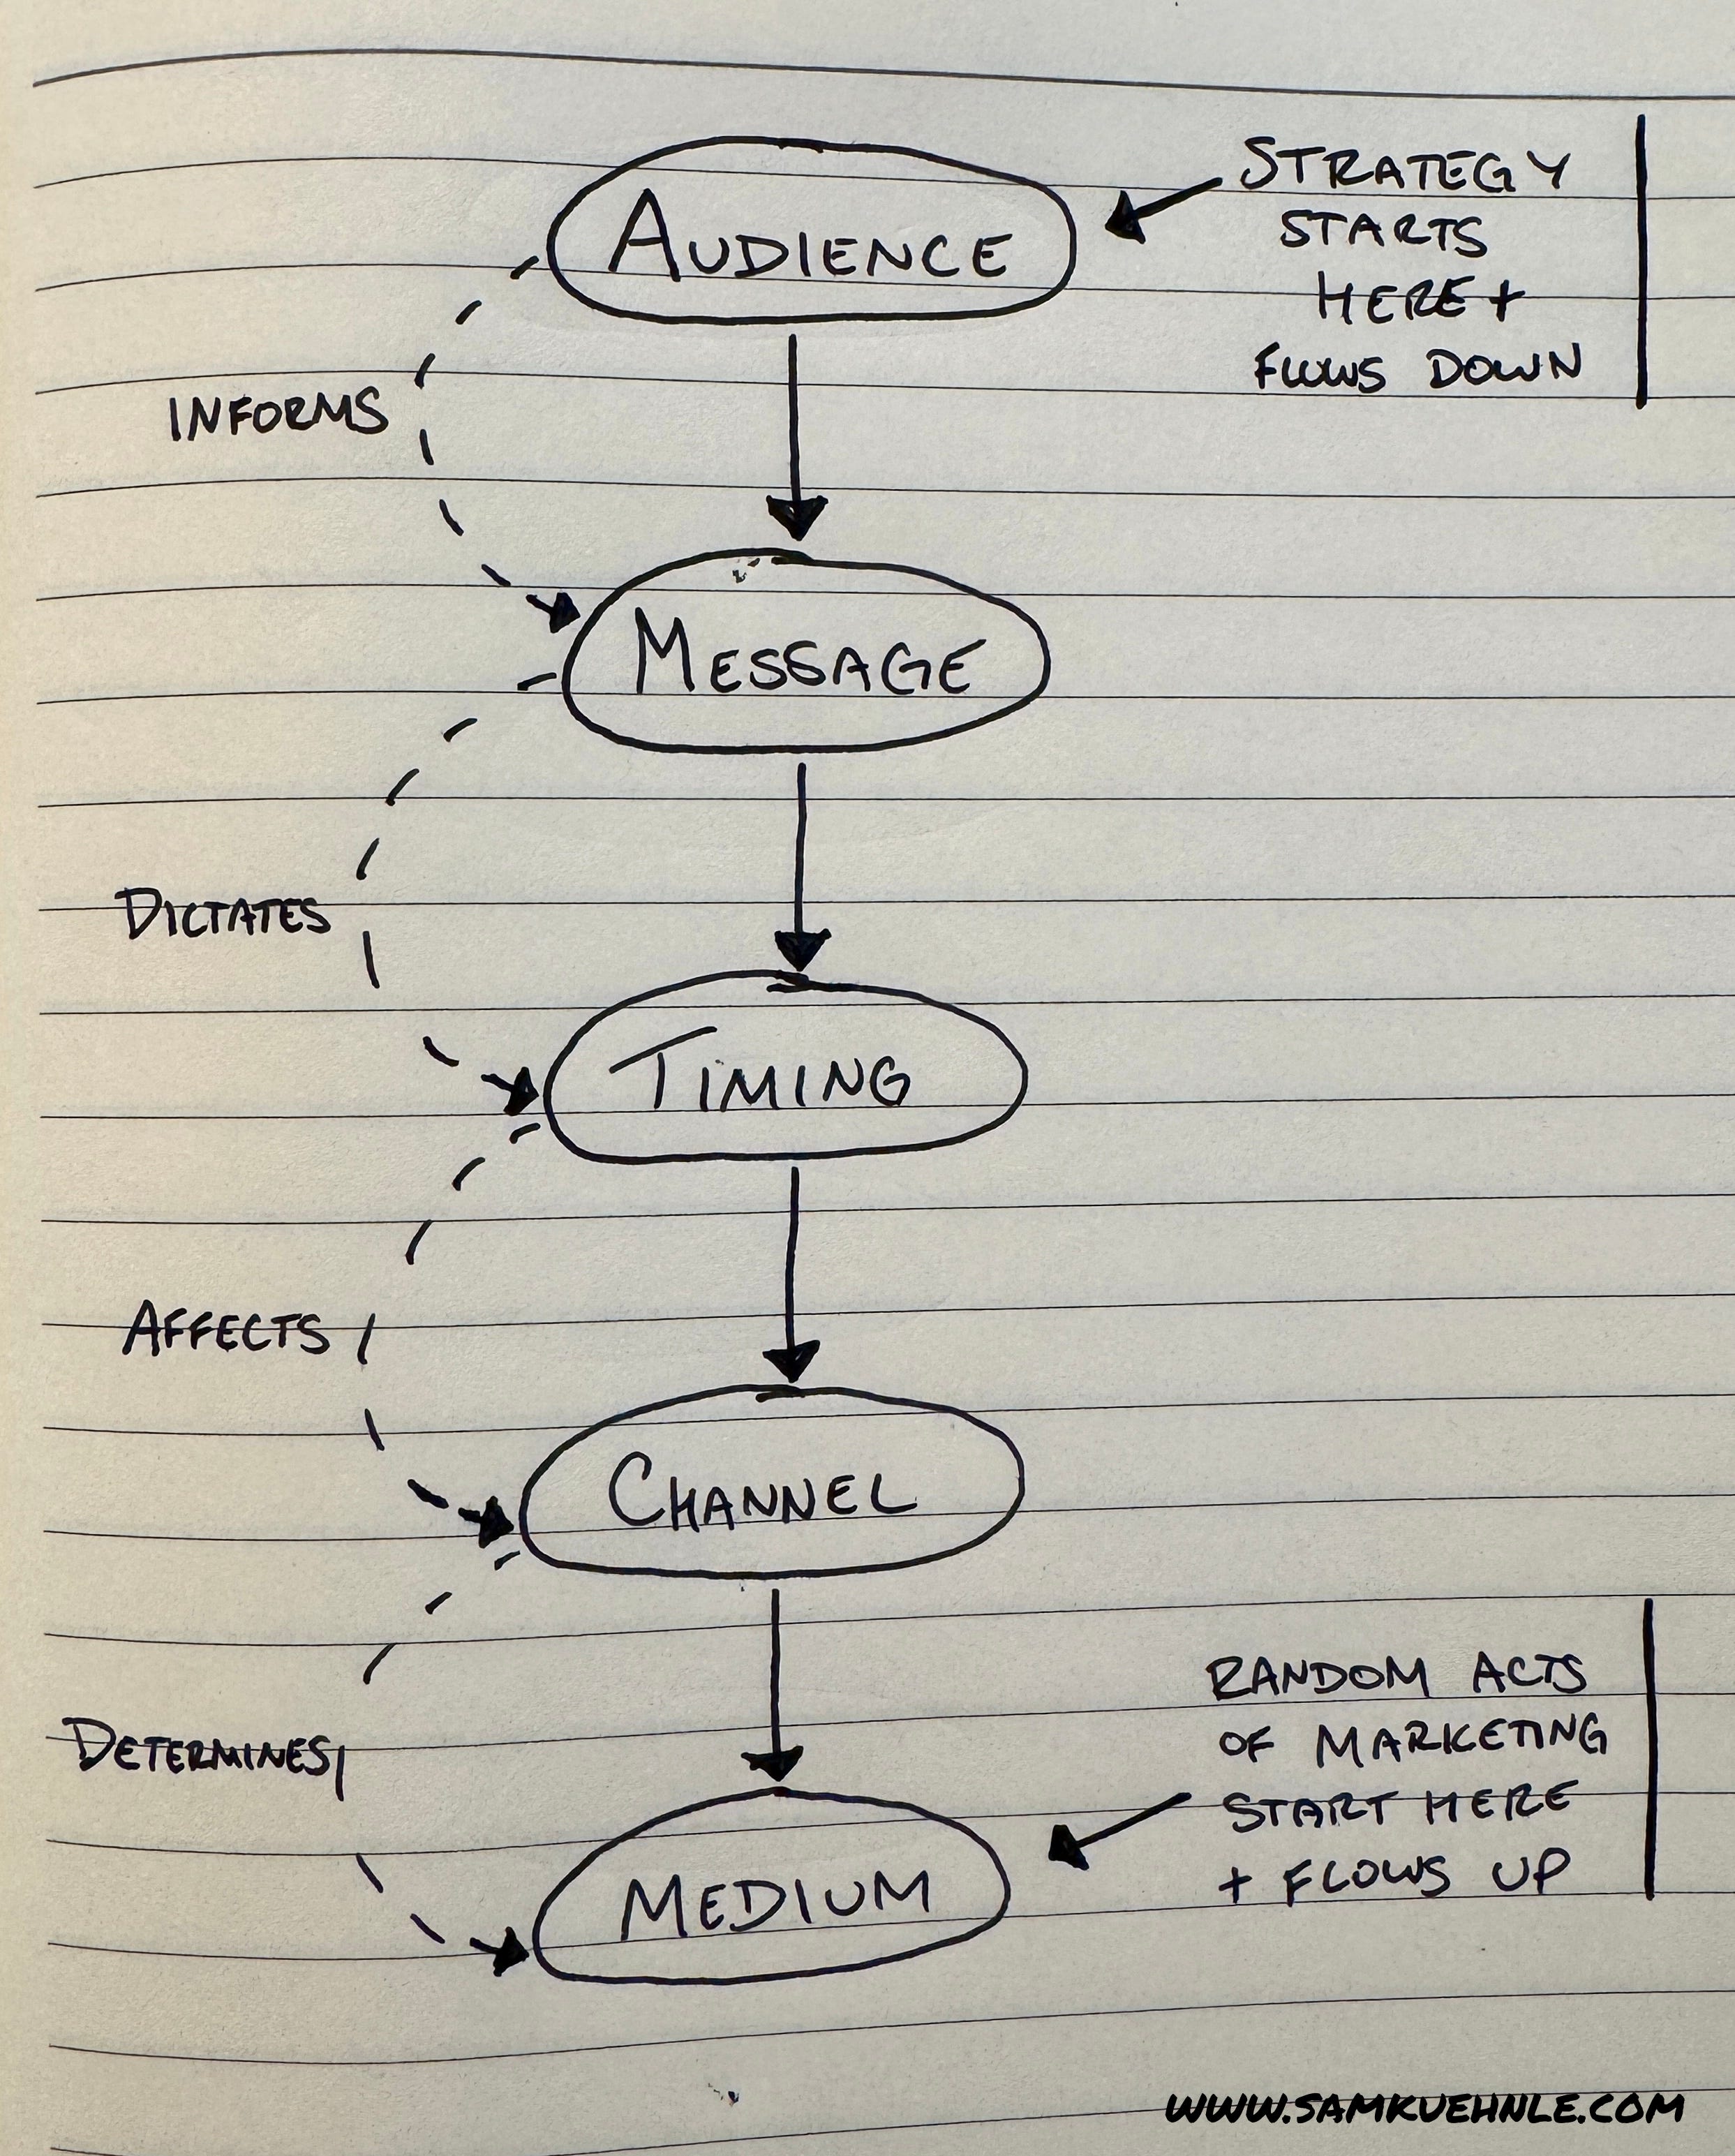 AUDIENCE
STRATEGY
STARTS
HERE +
FLOWS DOWN
INFORMS
MESSAGE
DICTATES
TIMING
AFFECTS
CHANNEL
DETERMINES
RANDOM ACTS
OF MARKETING
START HERE
+ FLOWS UP
MEDIUM
WWW.SAMKUEHNLE.COM